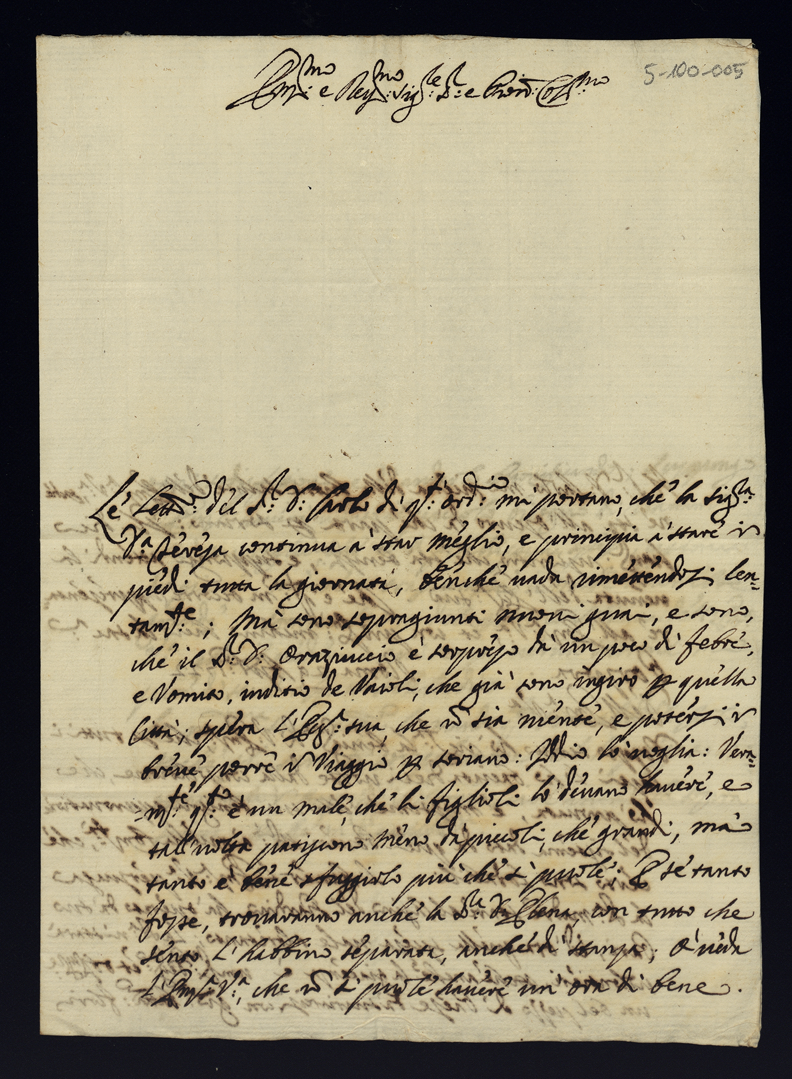 5-100-005
Em:mo e Rev:mo Sig:re S:r e Pron: Coll:mo
Le Lett:re del S:r D: Carlo di q:to ord:o mi portano, che la Sig:ra
D:a Tereja continua à star meglio, e principia à stare in
piedi tutta la giornata, benche uada rimettendosi len=
tam:te; Mà sono sopragiunti nuoui guai, e sono,
che il S:r D: Orazziuccio è sorpreso dà un poco di febre,
e Vomito, inditio de Vaioli, che già sono ingiro p quella
Città; spera l'Em:a sua, che nō sia niente, e potersi in
breue porre in Viaggio p Soriano: Iddio lo uoglia: Vera=
=m:te q:to è un male, che li figlioli lo deuano hauere, e
tal'uolta patiscono meno dà piccoli, che grandi, mà
tanto è bene sfuggirlo più che si puole; E se tanto
fosse, trouaranno anche la S:ra D: Elena, con tutto che
sento, l'habbino separata, anche di stanza; E ueda
l'Em:a V:a, che nō si puole hauere un' ora di bene.